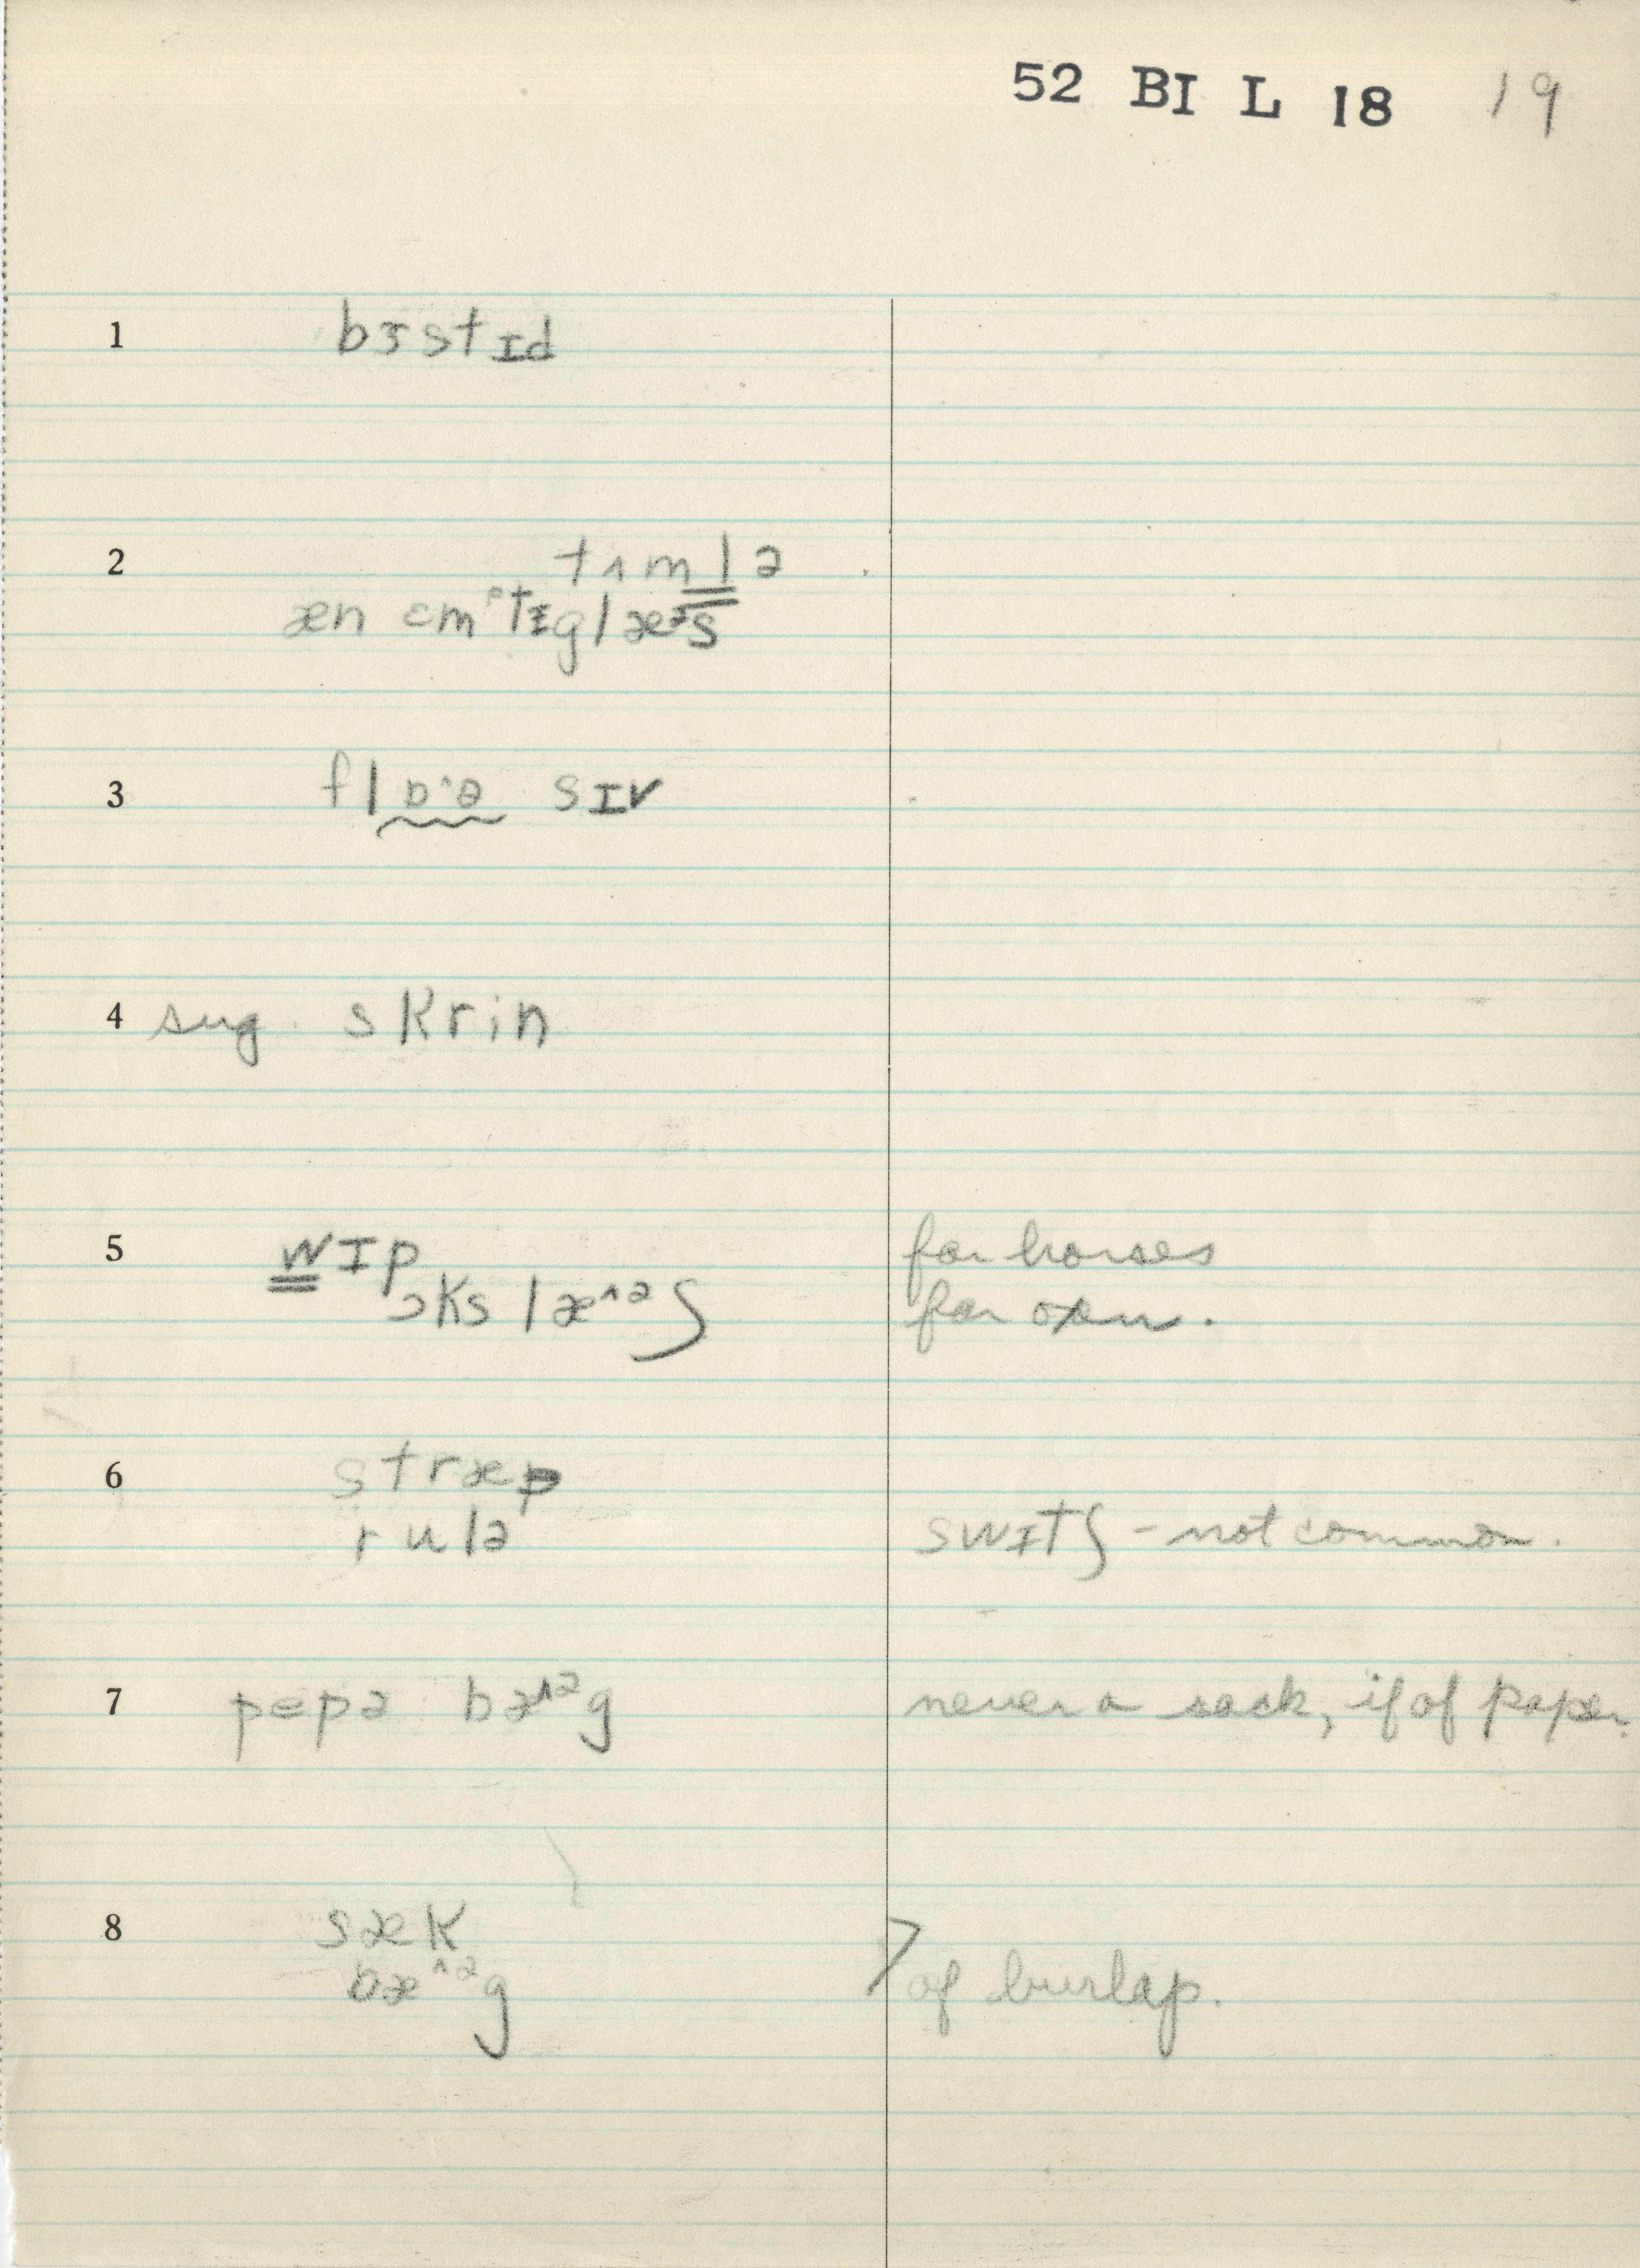 52 BI L 18 19
1 bɜstɪd
2 tʌmlə
æn ɛmᵖtɪglæᵊs
3 flɒ^ə sɪv
4 sug. skrin
5 wɪp for horses
ɔks læ^ᵊʃ for oxen.
6 stræp
rulə swɪtʃ - not common.
7 pepə bæ^ᵊg never a sack, if of paper.
8 sæk
bæ^ᵊg > of burlap.